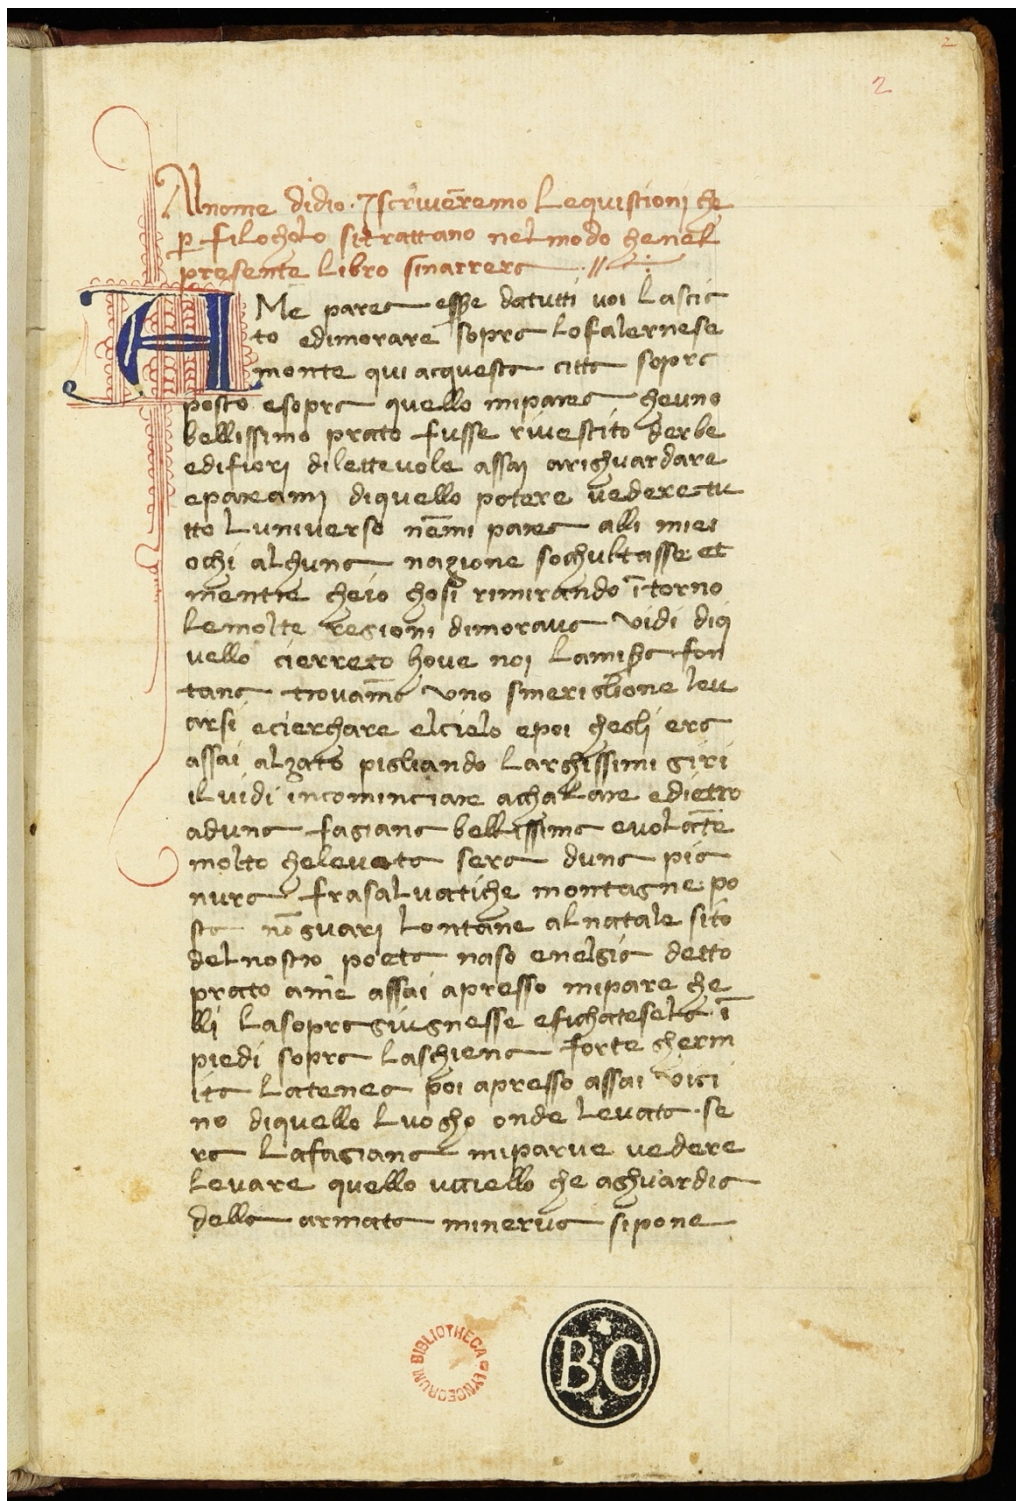 2
2
Alnome didio · Iscriveremo Lequistioni che
p̱ filocholo sitrattano nelmodo chenel
presente Libro sinarrera · // :
A Me parea esse datutti uoi Lascia
to edimorare sopra Lofalernese
monte qui acquesta citta sopra
posto esopra quello mipares cheuno
bellissimo prato fusse riuestito derbe
edifiori dilecteuole assai arisguardare
epareami diquello potere uederetu
tto Luniuerso nēmi parea alli miei
ochi alchuna nazione sochultasse et
mentre cheio chosi rimirando ītorno
Lemolte regioni dimoraua vidi diq
uello cierreto houe noi Lamisa fon
tana trouamo vno smeriglione leu
arsi ecierchare elcielo epoi chegli era
assai alzato pigliando Larghissimi giri
iluidi incominciare achalare edietro
aduna fagiana bellissima euolāte
molto cheleuata sera duna pia
nura frasaluatiche montagne po
sta nō guari Lontane alnatale sito
delnostro poeta naso enelgia detto
prato ame assai apresso mipare che
lli Lasopra giugnesse efichatesela ī
piedi sopra Laschiena forte gherm
ita Latenea poi apresso assai vici
no diquello Luogho onde Leuata · se
ra Lafagiana miparue uedere
Leuare quello uciello che aghuardia
della armata minerua sipone
BIBLIOTHECA LYNCEORUM
BC